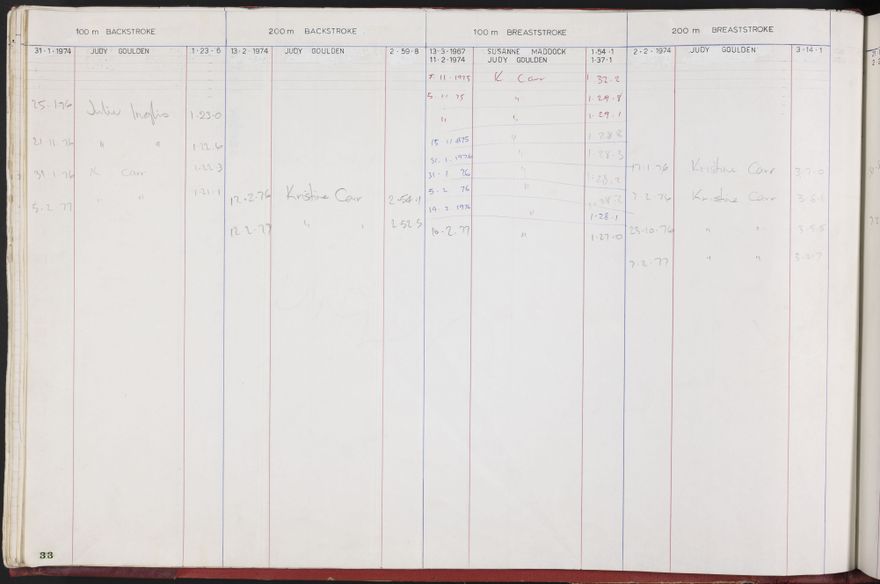 100 m BACKSTROKE 200 m BACKSTROKE 100 m BREASTSTROKE 200 m BREASTSTROKE
31-1-1974 JUDY GOULDEN 1-23-6 13-2-1974 JUDY GOULDEN 2-59-8 13-3-1967 SUSANNE MADDOCK 1-54-1 2-2-1974 JUDY GOULDEN 3-14-1
11-2-1974 JUDY GOULDEN 1-37-1
11.1975 K Carr 1 32.2
5. 11. 75 " 1.29.8
" " 1.29.1
Julie Inglis 1.23.0
15 11 1975 " 1.28.8
21.11.76 " " 1.22.6
31.1.1976 " 1.28.3
31.1.76 K Carr 1.22.3
31.1.76 " 1.28.2
17.1.76 Kristine Carr 3.7.0
5.2.77 " " 1.21.1
12.2.76 Kristine Carr 2.54.1
5.2.76 "
2.76 Kristine Carr
14.2.1976 " 1.28.1
12.2.77 " " 2.52.5
10.2.77 " 1.27.0
23.10.76 " " 3.5.5
2.77 " "
33